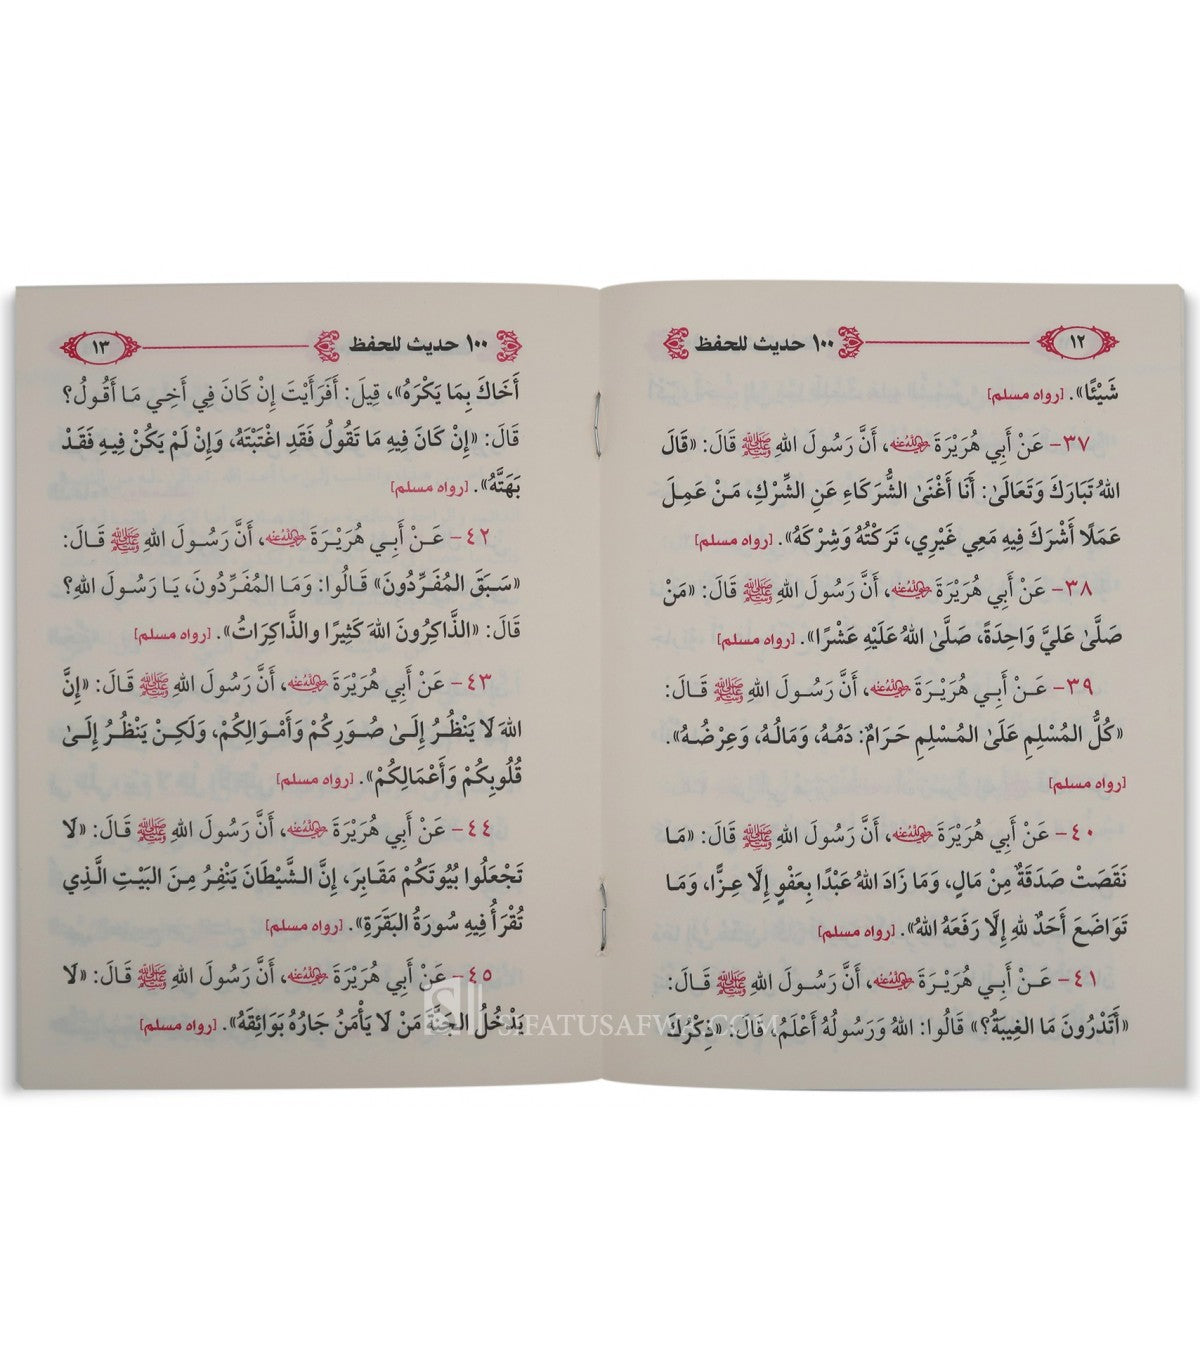 ١٢
١٠٠ حديث للحفظ
شَيْئًا». [رواه مسلم]
٣٧- عَنْ أَبِي هُرَيْرَةَ رضي الله عنه، أَنَّ رَسُولَ اللهِ ﷺ قَالَ: «قَالَ
اللهُ تَبَارَكَ وَتَعَالَىٰ: أَنَا أَغْنَىٰ الشُّرَكَاءِ عَنِ الشِّرْكِ، مَنْ عَمِلَ
عَمَلًا أَشْرَكَ فِيهِ مَعِي غَيْرِي، تَرَكْتُهُ وَشِرْكَهُ». [رواه مسلم]
٣٨- عَنْ أَبِي هُرَيْرَةَ رضي الله عنه، أَنَّ رَسُولَ اللهِ ﷺ قَالَ: «مَنْ
صَلَّىٰ عَليَّ وَاحِدَةً، صَلَّىٰ اللهُ عَلَيْهِ عَشْرًا». [رواه مسلم]
٣٩- عَنْ أَبِي هُرَيْرَةَ رضي الله عنه، أَنَّ رَسُولَ اللهِ ﷺ قَالَ:
«كُلُّ المُسْلِمِ عَلَىٰ المُسْلِمِ حَرَامٌ: دَمُهُ، وَمَالُهُ، وَعِرْضُهُ».
[رواه مسلم]
٤٠- عَنْ أَبِي هُرَيْرَةَ رضي الله عنه، أَنَّ رَسُولَ اللهِ ﷺ قَالَ: «مَا
نَقَصَتْ صَدَقَةٌ مِنْ مَالٍ، وَمَا زَادَ اللهُ عَبْدًا بِعَفْوٍ إِلَّا عِزًّا، وَمَا
تَوَاضَعَ أَحَدٌ لِلهِ إِلَّا رَفَعَهُ اللهُ». [رواه مسلم]
٤١- عَنْ أَبِي هُرَيْرَةَ رضي الله عنه، أَنَّ رَسُولَ اللهِ ﷺ قَالَ:
«أَتَدْرُونَ مَا الغِيبَةُ؟» قَالُوا: اللهُ وَرَسُولُهُ أَعْلَمُ، قَالَ: «ذِكْرُكَ
١٠٠ حديث للحفظ
١٣
أَخَاكَ بِمَا يَكْرَهُ»، قِيلَ: أَفَرَأَيْتَ إِنْ كَانَ فِي أَخِي مَا أَقُولُ؟
قَالَ: «إِنْ كَانَ فِيهِ مَا تَقُولُ فَقَدِ اغْتَبْتَهُ، وَإِنْ لَمْ يَكُنْ فِيهِ فَقَدْ
بَهَتَّهُ». [رواه مسلم]
٤٢- عَنْ أَبِي هُرَيْرَةَ رضي الله عنه، أَنَّ رَسُولَ اللهِ ﷺ قَالَ:
«سَبَقَ المُفَرِّدُونَ» قَالُوا: وَمَا المُفَرِّدُونَ، يَا رَسُولَ اللهِ؟
قَالَ: «الذَّاكِرُونَ اللهَ كَثِيرًا والذَّاكِرَاتُ». [رواه مسلم]
٤٣- عَنْ أَبِي هُرَيْرَةَ رضي الله عنه، أَنَّ رَسُولَ اللهِ ﷺ قَالَ: «إِنَّ
اللهَ لَا يَنْظُرُ إِلَىٰ صُوَرِكُمْ وَأَمْوَالِكُمْ، وَلَكِنْ يَنْظُرُ إِلَىٰ
قُلُوبِكُمْ وَأَعْمَالِكُمْ». [رواه مسلم]
٤٤- عَنْ أَبِي هُرَيْرَةَ رضي الله عنه، أَنَّ رَسُولَ اللهِ ﷺ قَالَ: «لَا
تَجْعَلُوا بُيُوتَكُمْ مَقَابِرَ، إِنَّ الشَّيْطَانَ يَنْفِرُ مِنَ البَيْتِ الَّذِي
تُقْرَأُ فِيهِ سُورَةُ البَقَرَةِ». [رواه مسلم]
٤٥- عَنْ أَبِي هُرَيْرَةَ رضي الله عنه، أَنَّ رَسُولَ اللهِ ﷺ قَالَ: «لَا
يَدْخُلُ الجَنَّةَ مَنْ لَا يَأْمَنُ جَارُهُ بَوَائِقَهُ». [رواه مسلم]